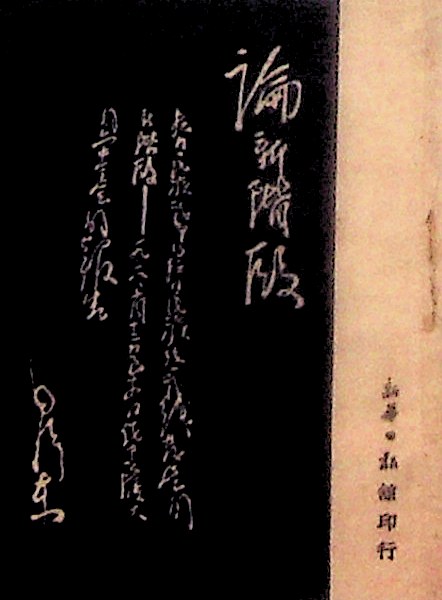 論新階段
抗日民族戰爭與抗日民族統一戰線發展的
新階段——一九三八年十月
的六中全會的報告
毛澤東
新華日報館印行